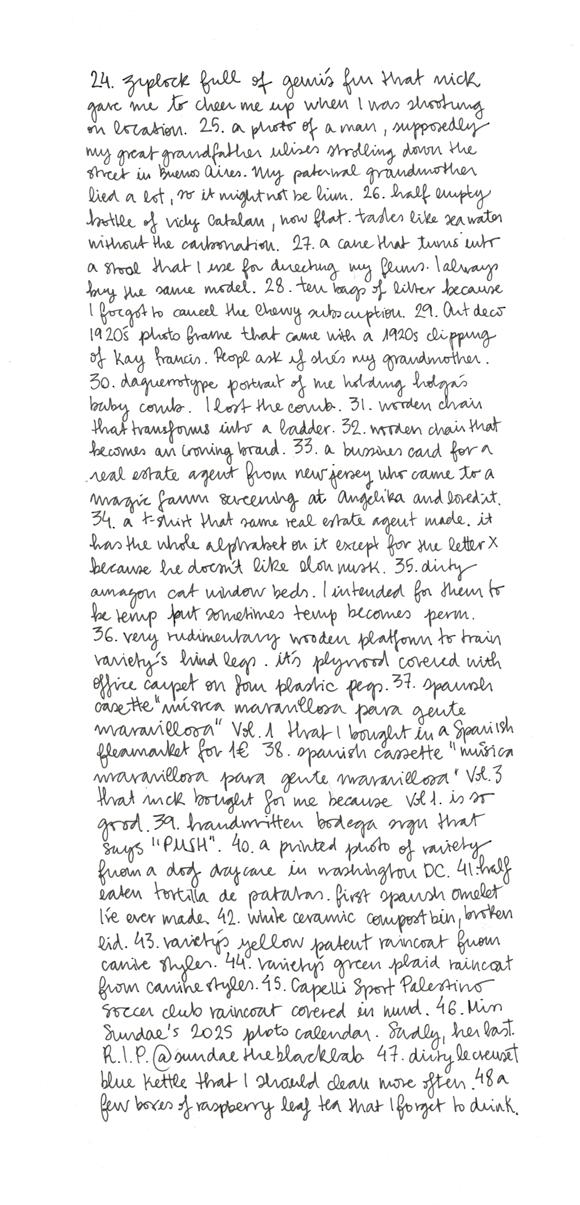 24. ziplock full of gemi's fur that nick
gave me to cheer me up when I was shooting
on location. 25. a photo of a man, supposedly
my great grandfather ulises strolling down the
street in Buenos Aires. My paternal grandmother
lied a lot, so it might not be him. 26. half empty
bottle of vichy Catalan, now flat. tastes like sea water
without the carbonation. 27. a cane that turns into
a stool that I use for directing my films. I always
buy the same model. 28. ten bags of litter because
I forgot to cancel the Chewy subscription. 29. Art deco
1920s photo frame that came with a 1920s clipping
of Kay Francis. Peopl ask if she's my grandmother.
30. daguerrotype portrait of me holding holga's
baby comb. I lost the comb. 31. wooden chair
that transforms into a ladder. 32. wooden chair that
becomes an ironing board. 33. a bussines card for a
real estate agent from new jersey who came to a
magic farm screening at Angelika and loved it.
34. a t-shirt that same real estate agent made. it
has the whole alphabet on it except for the letter X
because he doesn't like elon musk. 35. dirty
amazon cat window beds. I intended for them to
be temp but sometimes temp becomes perm.
36. very rudimentary wooden platform to train
variety's hind legs. it's plywood covered with
office carpet on four plastic pegs. 37. spanish
casette "música maravillosa para gente
maravillosa" Vol. 1 that I bought in a Spanish
fleamarket for 1€ 38. spanish cassette "música
maravillosa para gente maravillosa" Vol. 3
that nick bought for me because Vol 1. is so
good. 39. handwritten bodega sign that
says "PUSH". 40. a printed photo of variety
from a dog daycare in washington DC. 41. half
eaten tortilla de patatas. first spanish omelet
I've ever made. 42. white ceramic compost bin, broken
lid. 43. variety's yellow patent raincoat from
canine styles. 44. variety's green plaid raincoat
from canine styles. 45. Capelli Sport Palestino
soccer club raincoat covered in mud. 46. Miss
Sundae's 2025 photo calendar. Sadly, her last.
R.I.P. @sundaetheblacklab 47. dirty le creuset
blue kettle that I should clean more often. 48 a
few boxes of raspberry leaf tea that I forget to drink.